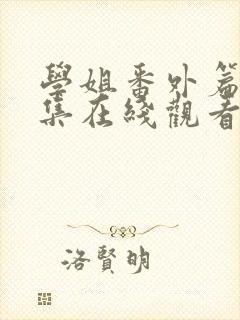 學姐番外篇
集在綫觀看
洛賢明